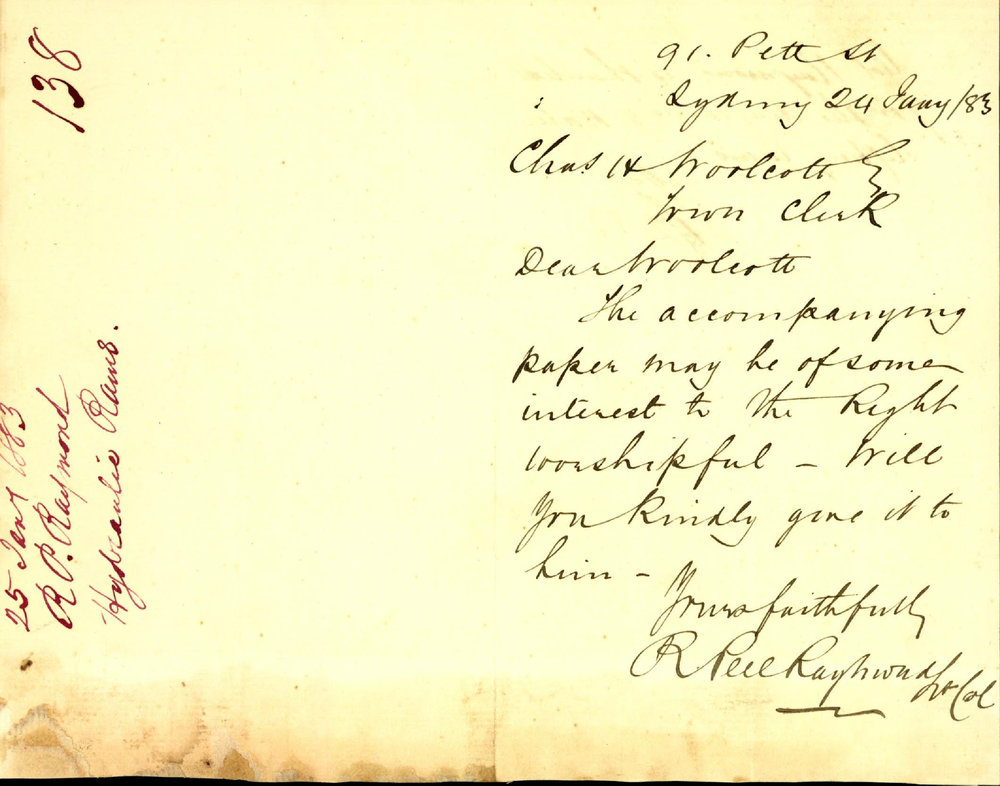 138
25 Jany 1883
R P. Raymond
Hydraulic Rams.
91. Pitt St
Sydney 24 Jany /83
Chas. H Woolcott Eq
Town Clerk
Dear Woolcott
The accompanying
paper may be of some
interest to the Right
worshipful – Will
you kindly give it to
him –
Yours faithfully
R Peel Raymond Lt Col